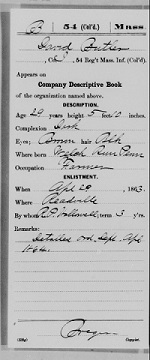 B | 54 (Col'd.) | Mass.
David Butler
Co. B, 54 Reg't Mass. Inf. (Col'd)
Appears on
Company Descriptive Book
of the organization named above.
DESCRIPTION.
Age 29 years; height 5 feet 10 inches.
Complexion Dark
Eyes; Brown hair Blk
Where born Welsh Run Penn
Occupation Farmer
ENLISTMENT.
When Apl 29, 1863.
Where Readville
By whom term 3 y'rs.
Remarks:
Detailed Ord. Dept. Apl
1864.
Copyist.